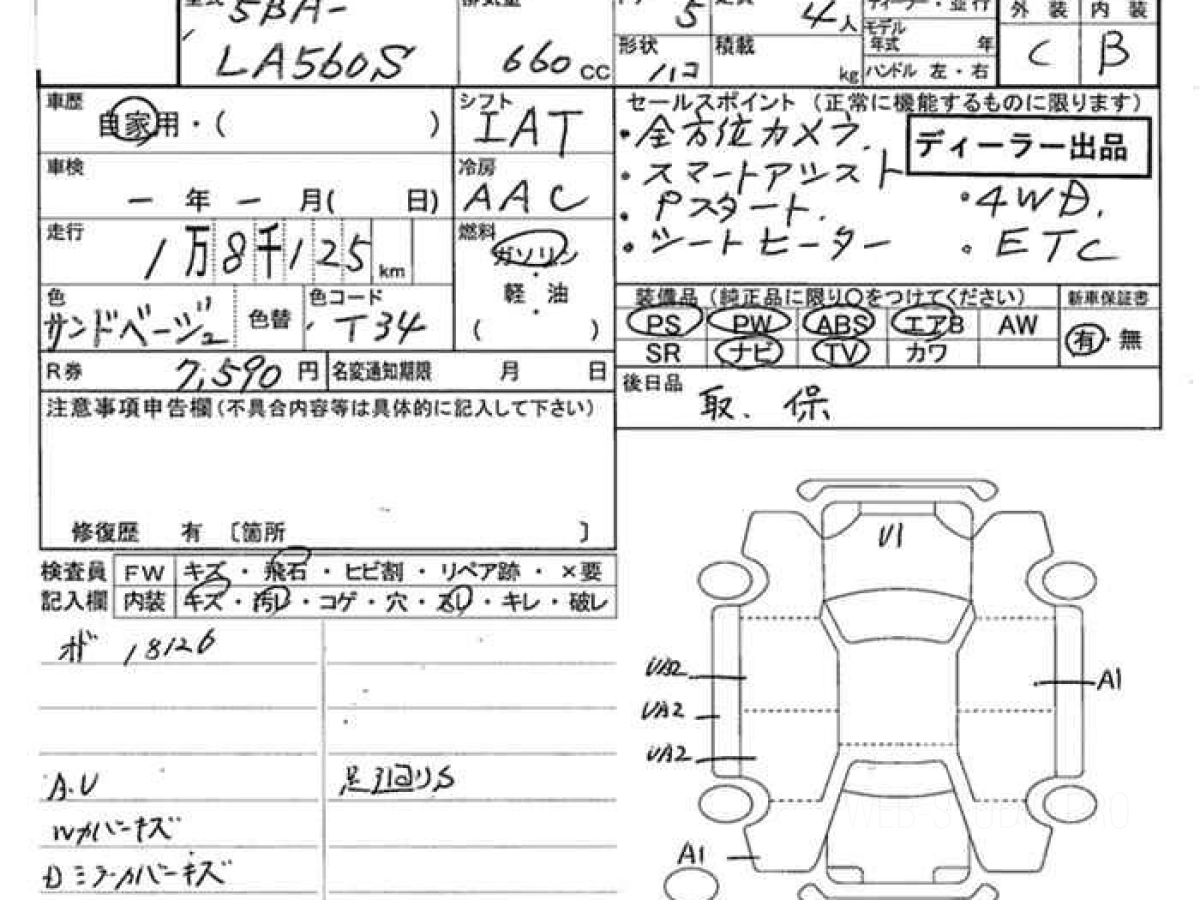 型式 5BA-
LA560S
排気量 660 CC
5 定員 4人
形状 ハコ 積載 kg
ディーラー・並行
モデル年式 年
ハンドル 左・右
外装 内装
C B
車歴 自家用・( )
シフト IAT
車検 - 年 - 月( 日)
冷房 AAC
走行 1万8千125 km
燃料 ガソリン・軽油・( )
色 サンドベージュ 色替
色コード T34
R券 7,590円 名変通知期限 月 日
セールスポイント (正常に機能するものに限ります)
・全方位カメラ.
ディーラー出品
・スマートアシスト
・Pスタート. ・4WD.
・シートヒーター ・ETC
装備品(純正品に限り○をつけてください) 新車保証書
PS PW ABS エアB AW
SR ナビ TV カワ
有・無
後日品 取. 保
注意事項申告欄(不具合内容等は具体的に記入して下さい)
修復歴 有 〔箇所 〕
検査員記入欄
FW キズ・飛石・ヒビ割・リペア跡・×要
内装 キズ・汚レ・コゲ・穴・スレ・キレ・破レ
オド 18126
A.U
Wカバーキズ
Dミラーカバーキズ
足回りS
U1
UA2
UA2
UA2
A1
A1
WEB-STUDIO.PRO